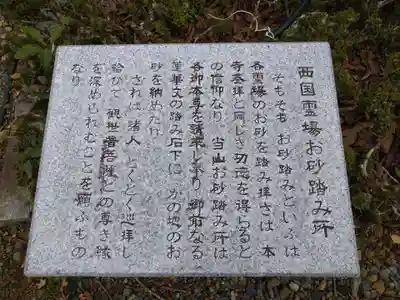 西国霊場お砂踏み所
そもそも お砂踏みといふは
各霊場のお砂を踏み拝さば 本
寺参拝と同じき功徳を得らると
の信仰なり 当山お砂踏み所は
各御本尊を請来し奉り 御前なる
蓮華文の踏み石下に かの地のお
砂を納めたり
されば諸人 とくとく巡拝し
給ひて 観世音菩薩との尊き縁
を深められむことを願ふもの
なり